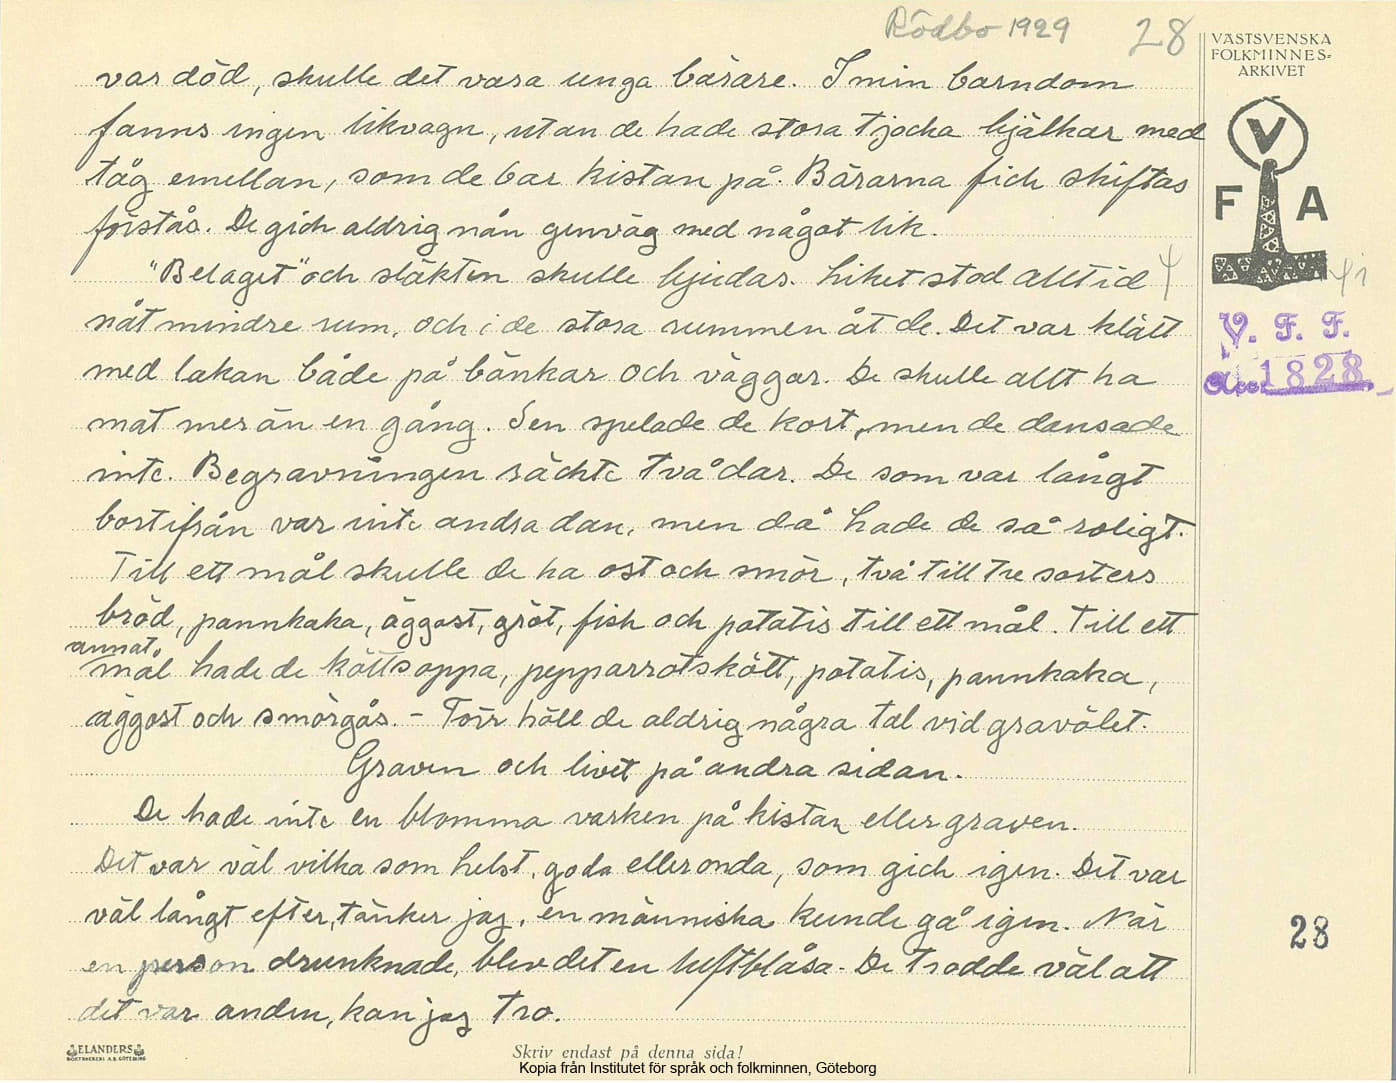 Rödbo 1929 28
VÄSTSVENSKA
FOLKMINNES=
ARKIVET
V
F A
V. F. F.
Acc. 1828.
var död, skulle det vara unga bärare. I min barndom
fanns ingen likvagn, utan de hade stora tjocka bjälkar med
tåg emellan, som de bar kistan på. Bärarna fick skiftas
förstås. De gick aldrig nån genväg med något lik.
"Belaget" och släkten skulle bjudas. Liket stod alltid i
nåt mindre rum, och i de stora rummen åt de. Det var klätt
med lakan både på bänkar och väggar. De skulle allt ha
mat mer än en gång. Sen spelade de kort, men de dansade
inte. Begravningen räckte två dar. De som var långt
bortifrån var inte andra dan, men då hade de så roligt.
Till ett mål skulle de ha ost och smör, två till tre sorters
bröd, pannkaka, äggost, gröt, fisk och potatis till ett mål. Till ett
annat
mål hade de köttsoppa, pepparrotskött, potatis, pannkaka,
äggost och smörgås. – Förr höll de aldrig några tal vid gravölet.
Graven och livet på andra sidan.
De hade inte en blomma varken på kistan eller graven.
Det var väl vilka som helst, goda eller onda, som gick igen. Det var
väl långt efter, tänker jag, en människa kunde gå igen. När
en person drunknade, blev det en luftblåsa. De trodde väl att
det var anden, kan jag tro.
28
ELANDERS
BOKTRYCKERI A.B. GÖTEBORG
Skriv endast på denna sida!
Kopia från Institutet för språk och folkminnen, Göteborg